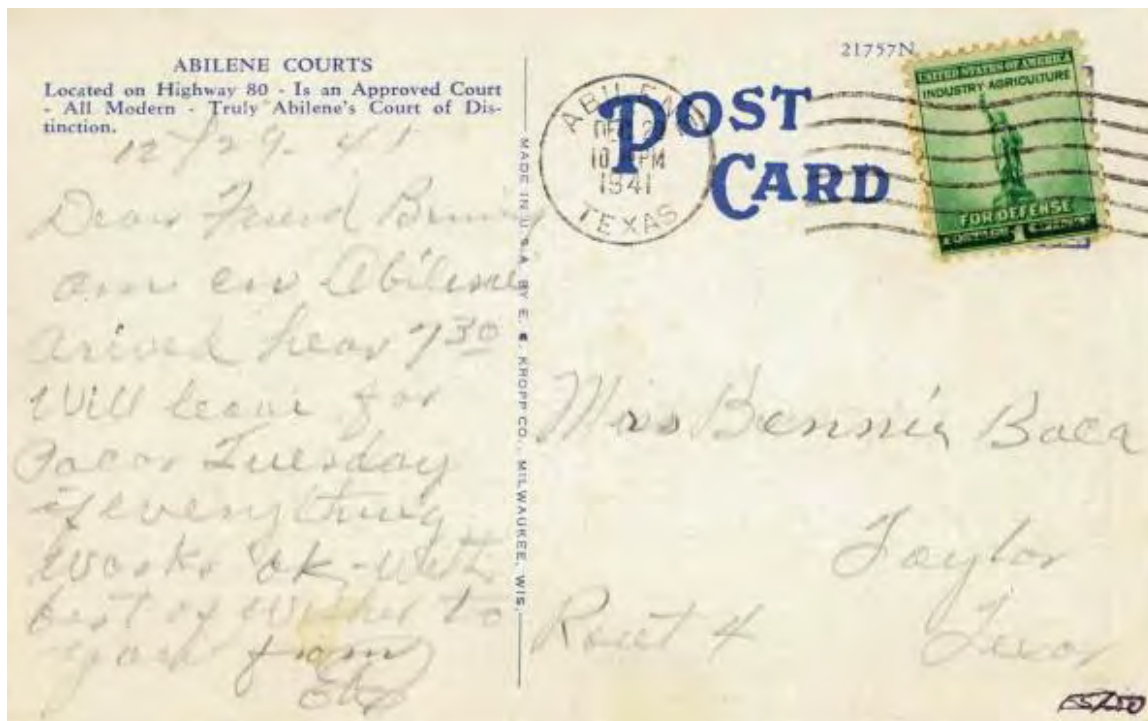 ABILENE COURTS
Located on Highway 80 - Is an Approved Court
- All Modern - Truly Abilene's Court of Dis-
tinction.
12/29-41
Dear Friend
am en Abilene
arived hear 7 30
Will leave for
Tuesday
if everything
works ok - with
best of wishes to
you from
MADE IN U.S.A. BY E. C. KROPP CO., MILWAUKEE, WIS.
21757N
POST
CARD
ABILENE
DEC
PM
1941
TEXAS
UNITED STATES OF AMERICA
INDUSTRY AGRICULTURE
FOR DEFENSE
1
Miss Bennie Baca
Taylor
Rout 4
Texas